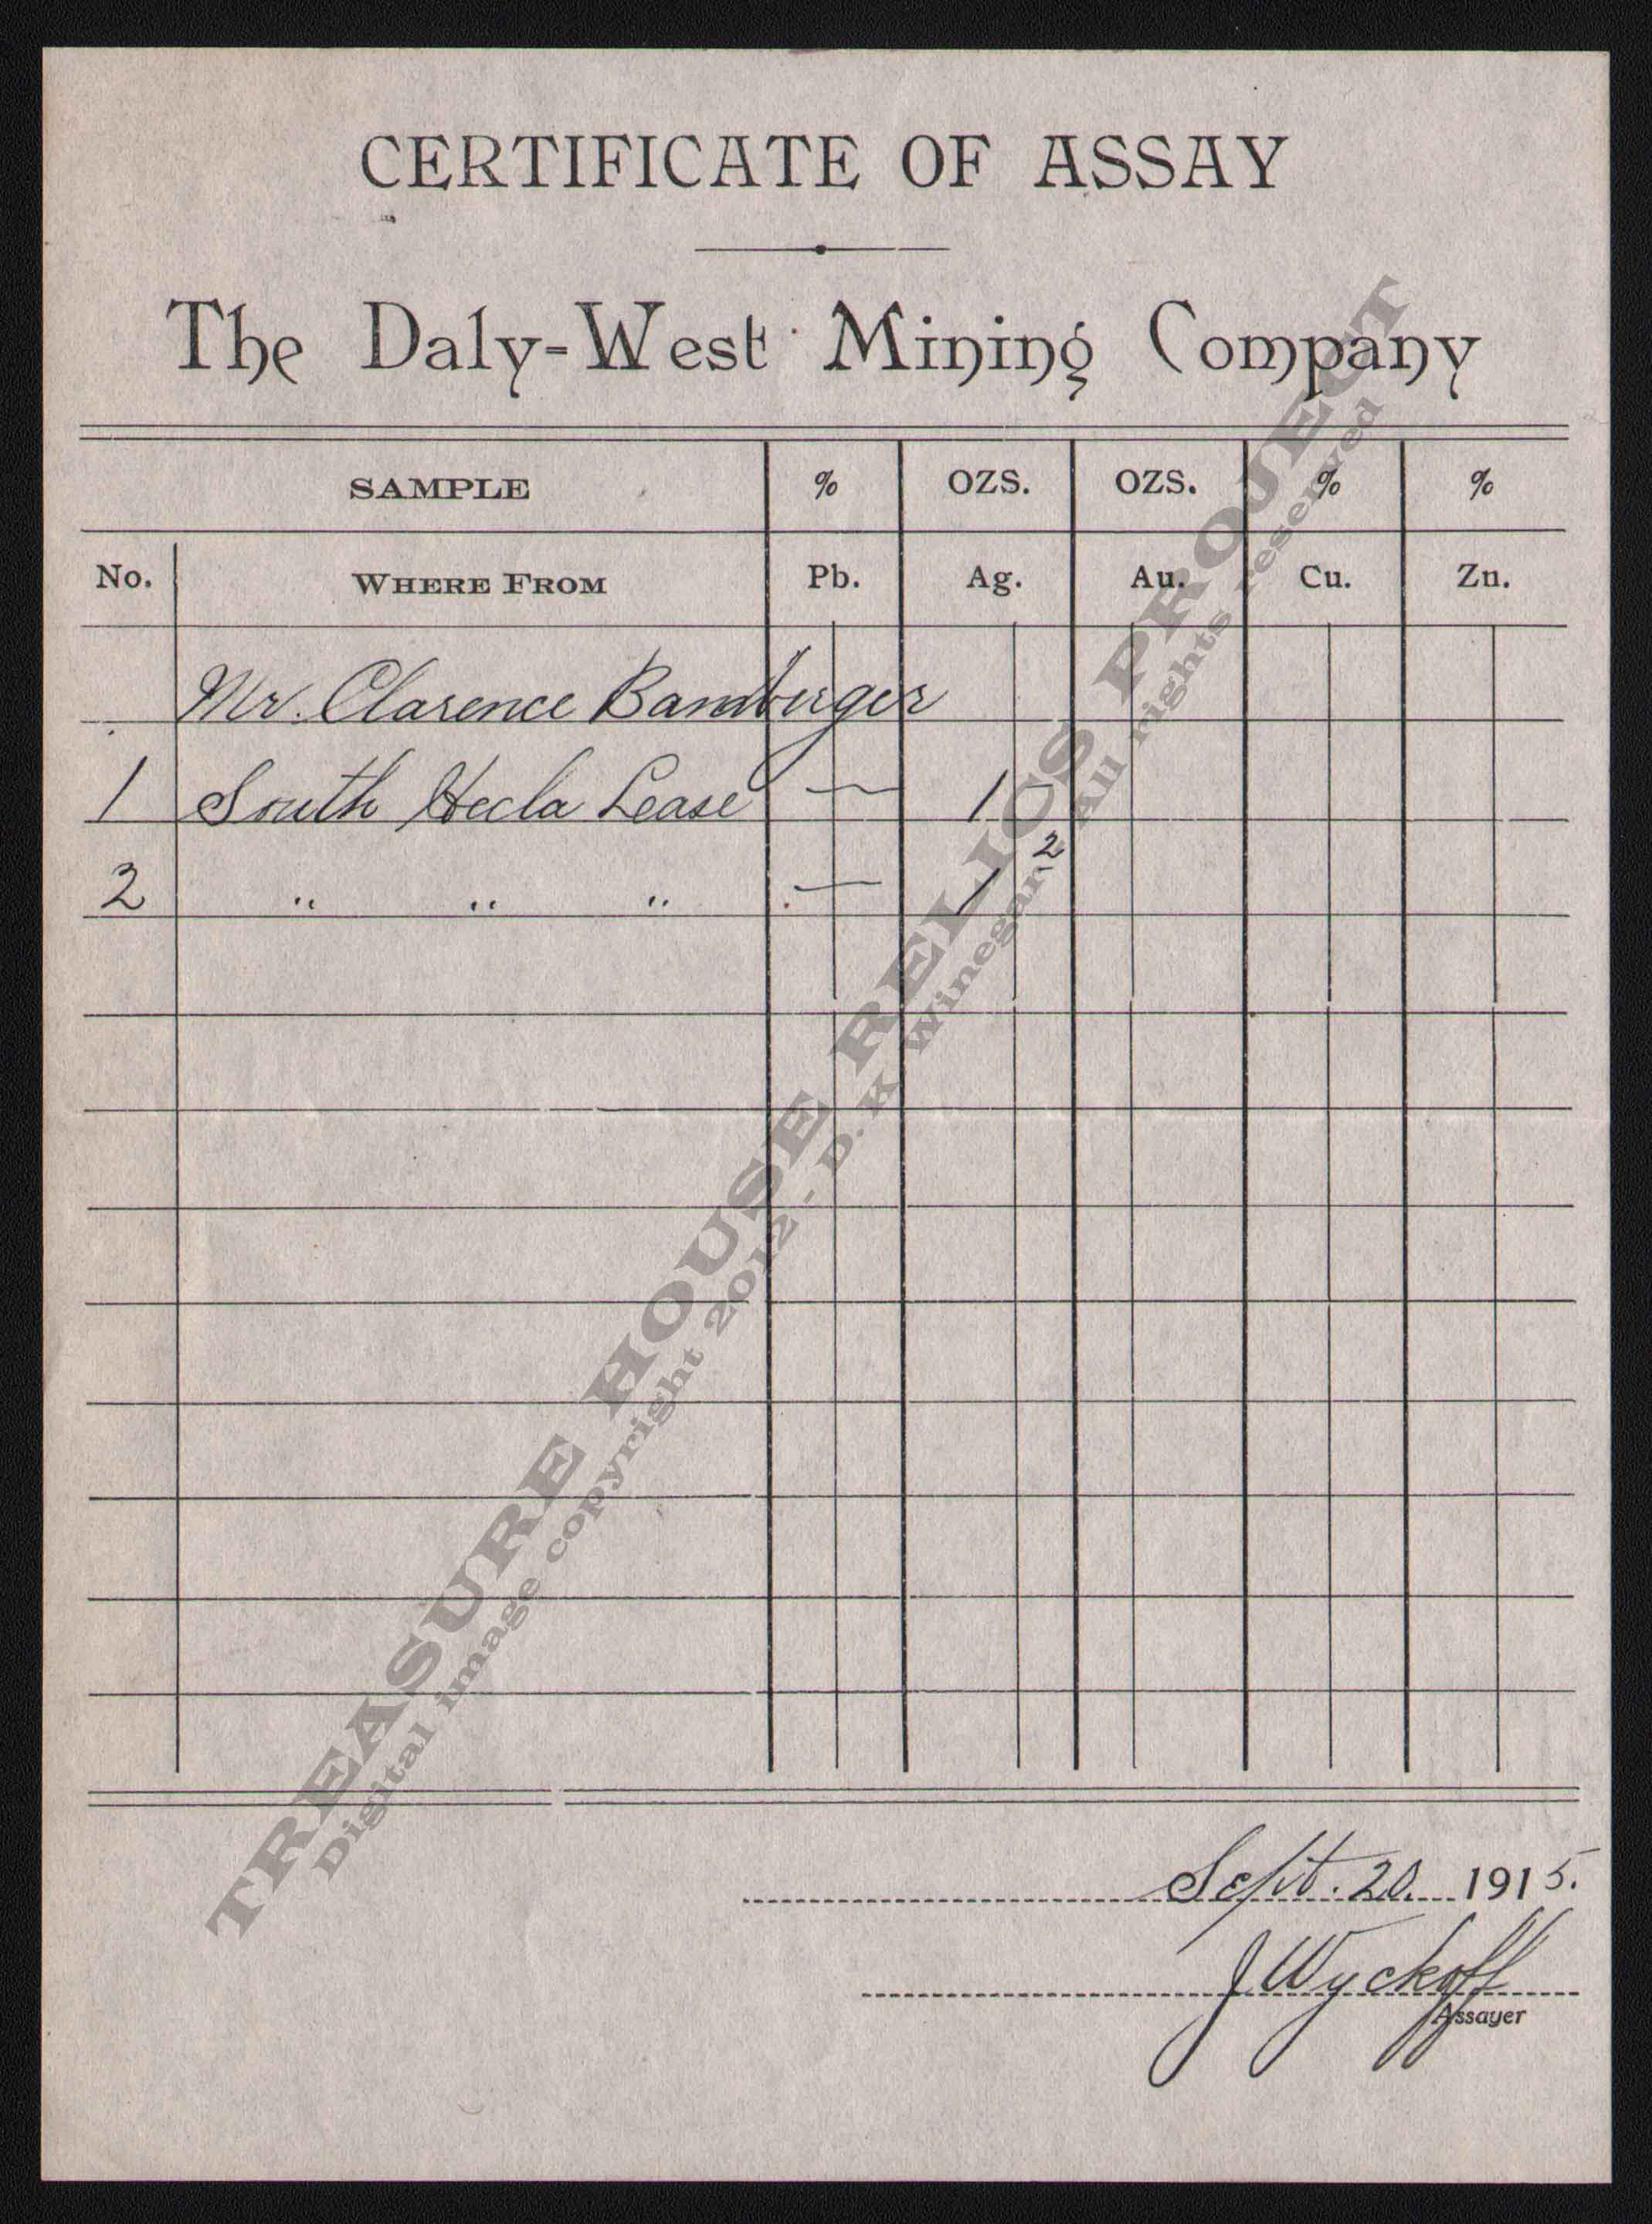 CERTIFICATE OF ASSAY
The Daly-West Mining Company
SAMPLE % OZS. OZS. % %
No. WHERE FROM Pb. Ag. Au. Cu. Zn.
Mr. Clarence Bamberger
1 South Hecla Lease — 1
2 " " " — 1 2
Sept. 20. 1915.
J Wyckoff
Assayer
TREASURE HOUSE RELICS PROJECT
Digital image copyright 2012 - D.K Winegar All rights reserved